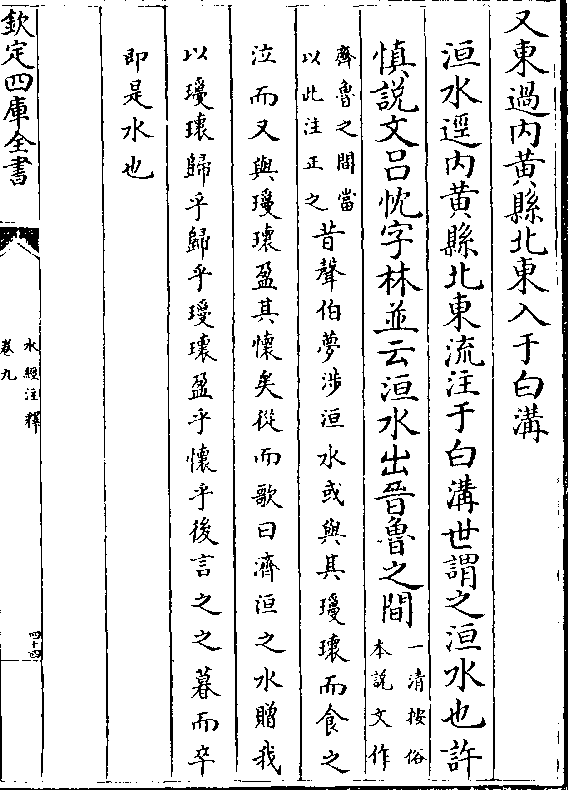 又東過内黄縣北東入于白溝
洹水逕内黄縣北東流注于白溝世謂之洹水也許
慎說文吕忱字林並云洹水出晉魯之間一清按俗
本說文作
齊魯之間當
以此注正之昔聲伯夢涉洹水或與其瓊瓌而食之
泣而又與瓊瓌盈其懷矣從而歌曰濟洹之水贈我
以瓊瓌歸乎歸乎瓊瓌盈乎懷乎後言之之暮而卒
即是水也
欽定四庫全書
水經注釋
卷九
四十四